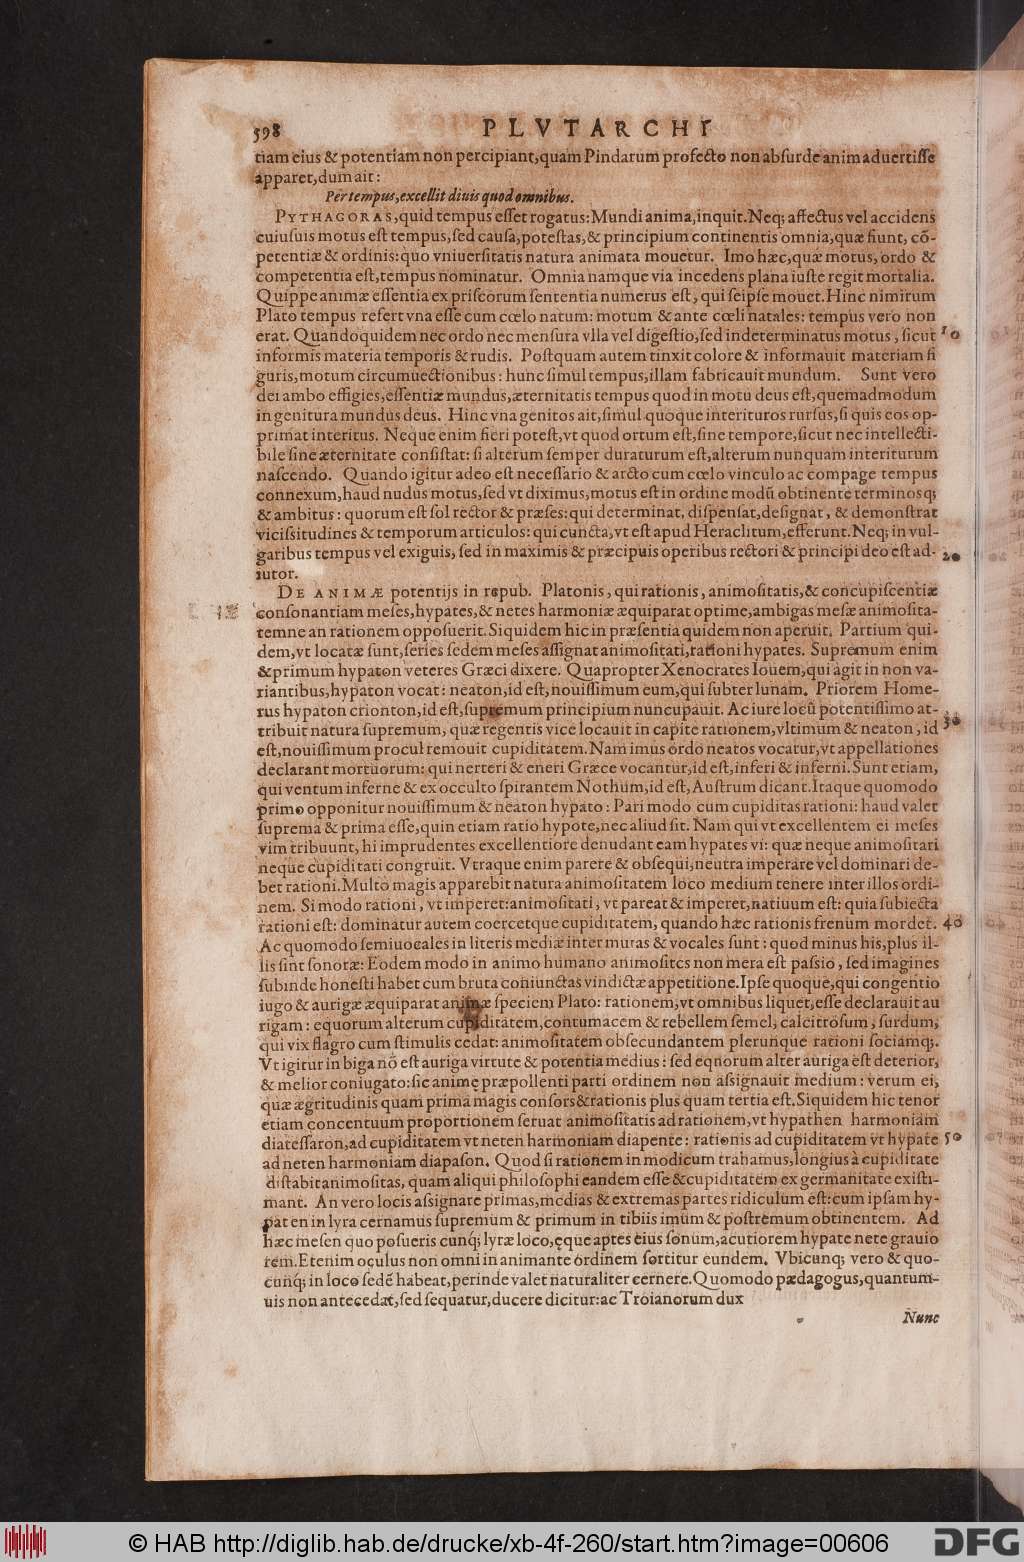 598 PLVTARCHI
tiam eius & potentiam non percipiant, quam Pindarum profecto non absurde animaduertisse
apparet, dum ait:
Per tempus, excellit diuis quod omnibus.
PYTHAGORAS, quid tempus esset rogatus: Mundi anima, inquit. Neq; affectus vel accidens
cuiusuis motus est tempus, sed causa, potestas, & principium continentis omnia, quæ fiunt, cõ-
petentiæ & ordinis: quo vniuersitatis natura animata mouetur. Imo hæc, quæ motus, ordo &
competentia est, tempus nominatur. Omnia namque via incedens plana iuste regit mortalia.
Quippe animæ essentia ex priscorum sententia numerus est, qui seipse mouet. Hinc nimirum
Plato tempus refert vna esse cum cœlo natum: motum & ante cœli natales: tempus vero non
erat. Quandoquidem nec ordo nec mensura vlla vel digestio, sed indeterminatus motus, sicut 10
informis materia temporis & rudis. Postquam autem tinxit colore & informauit materiam fi
guris, motum circumuectionibus: hunc simul tempus, illam fabricauit mundum. Sunt vero
dei ambo effigies, essentiæ mundus, æternitatis tempus quod in motu deus est, quemadmodum
in genitura mundus deus. Hinc vna genitos ait, simul quoque interituros rursus, si quis eos op-
primat interitus. Neque enim fieri potest, vt quod ortum est, sine tempore, sicut nec intellecti-
bile sine æternitate consistat: si alterum semper duraturum est, alterum nunquam interiturum
nascendo. Quando igitur adeo est necessario & arcto cum cœlo vinculo ac compage tempus
connexum, haud nudus motus, sed vt diximus, motus est in ordine modũ obtinente terminosq;
& ambitus: quorum est sol rector & præses: qui determinat, dispensat, designat, & demonstrat
vicissitudines & temporum articulos: qui cuncta, vt est apud Heraclitum, efferunt. Neq; in vul-
garibus tempus vel exiguis, sed in maximis & præcipuis operibus rectori & principi deo est ad- 20
iutor.
DE ANIMÆ potentijs in repub. Platonis, qui rationis, animositatis, & concupiscentiæ
consonantiam meses, hypates, & netes harmoniæ æquiparat optime, ambigas mesæ animosita-
temne an rationem opposuerit. Siquidem hic in præsentia quidem non aperuit. Partium qui-
dem, vt locatæ sunt, series sedem meses assignat animositati, rationi hypates. Supremum enim
& primum hypaton veteres Græci dixere. Quapropter Xenocrates Iouem, qui agit in non va-
riantibus, hypaton vocat: neaton, id est, nouissimum eum, qui subter lunam. Priorem Home-
rus hypaton crionton, id est, supremum principium nuncupauit. Ac iure locũ potentissimo at-
tribuit natura supremum, quæ regentis vice locauit in capite rationem, vltimum & neaton, id 30
est, nouissimum procul remouit cupiditatem. Nam imus ordo neatos vocatur, vt appellationes
declarant mortuorum: qui nerteri & eneri Græce vocantur, id est, inferi & inferni. Sunt etiam,
qui ventum inferne & ex occulto spirantem Nothum, id est, Austrum dicant. Itaque quomodo
primo opponitur nouissimum & neaton hypato: Pari modo cum cupiditas rationi: haud valet
suprema & prima esse, quin etiam ratio hypote, nec aliud sit. Nam qui vt excellentem ei meses
vim tribuunt, hi imprudentes excellentiore denudant eam hypates vi: quæ neque animositati
neque cupiditati congruit. Vtraque enim parere & obsequi, neutra imperare vel dominari de-
bet rationi. Multo magis apparebit natura animositatem loco medium tenere inter illos ordi-
nem. Si modo rationi, vt imperet: animositati, vt pareat & imperet, natiuum est: quia subiecta
rationi est: dominatur autem coercetque cupiditatem, quando hæc rationis frenum mordet. 40
Ac quomodo semiuocales in literis mediæ inter mutas & vocales sunt: quod minus his, plus il-
lis sint sonoræ: Eodem modo in animo humano animositcs non mera est passio, sed imagines
subinde honesti habet cum bruta coniunctas vindictæ appetitione. Ipse quoque, qui congentio
iugo & aurigæ æquiparat animæ speciem Plato: rationem, vt omnibus liquet, esse declarauit au
rigam: equorum alterum cupiditatem, contumacem & rebellem semel, calcitrosum, surdum,
qui vix flagro cum stimulis cedat: animositatem obsecundantem plerunque rationi sociamq;.
Vt igitur in biga nõ est auriga virtute & potentia medius: sed equorum alter auriga est deterior,
& melior coniugato: sic animę præpollenti parti ordinem non assignauit medium: verum ei,
quæ ægritudinis quam prima magis consors & rationis plus quam tertia est. Siquidem hic tenor
etiam concentuum proportionem seruat animositatis ad rationem, vt hypathen harmoniam
diatessaron, ad cupiditatem vt neten harmoniam diapente: rationis ad cupiditatem vt hypate 50
ad neten harmoniam diapason. Quod si rationem in modicum trahamus, longius à cupiditate
distabit animositas, quam aliqui philosophi eandem esse & cupiditatem ex germanitate existi-
mant. An vero locis assignare primas, medias & extremas partes ridiculum est: cum ipsam hy-
paten in lyra cernamus supremum & primum in tibiis imum & postremum obtinentem. Ad
hæc mesen quo posueris cunq; lyræ loco, ęque aptes eius sonum, acutiorem hypate nete grauio
rem. Etenim oculus non omni in animante ordinem sortitur eundem. Vbicunq; vero & quo-
cunq; in loco sedẽ habeat, perinde valet naturaliter cernere. Quomodo pædagogus, quantum-
uis non antecedat, sed sequatur, ducere dicitur: ac Troianorum dux
Nunc
© HAB http://diglib.hab.de/drucke/xb-4f-260/start.htm?image=00606 DFG